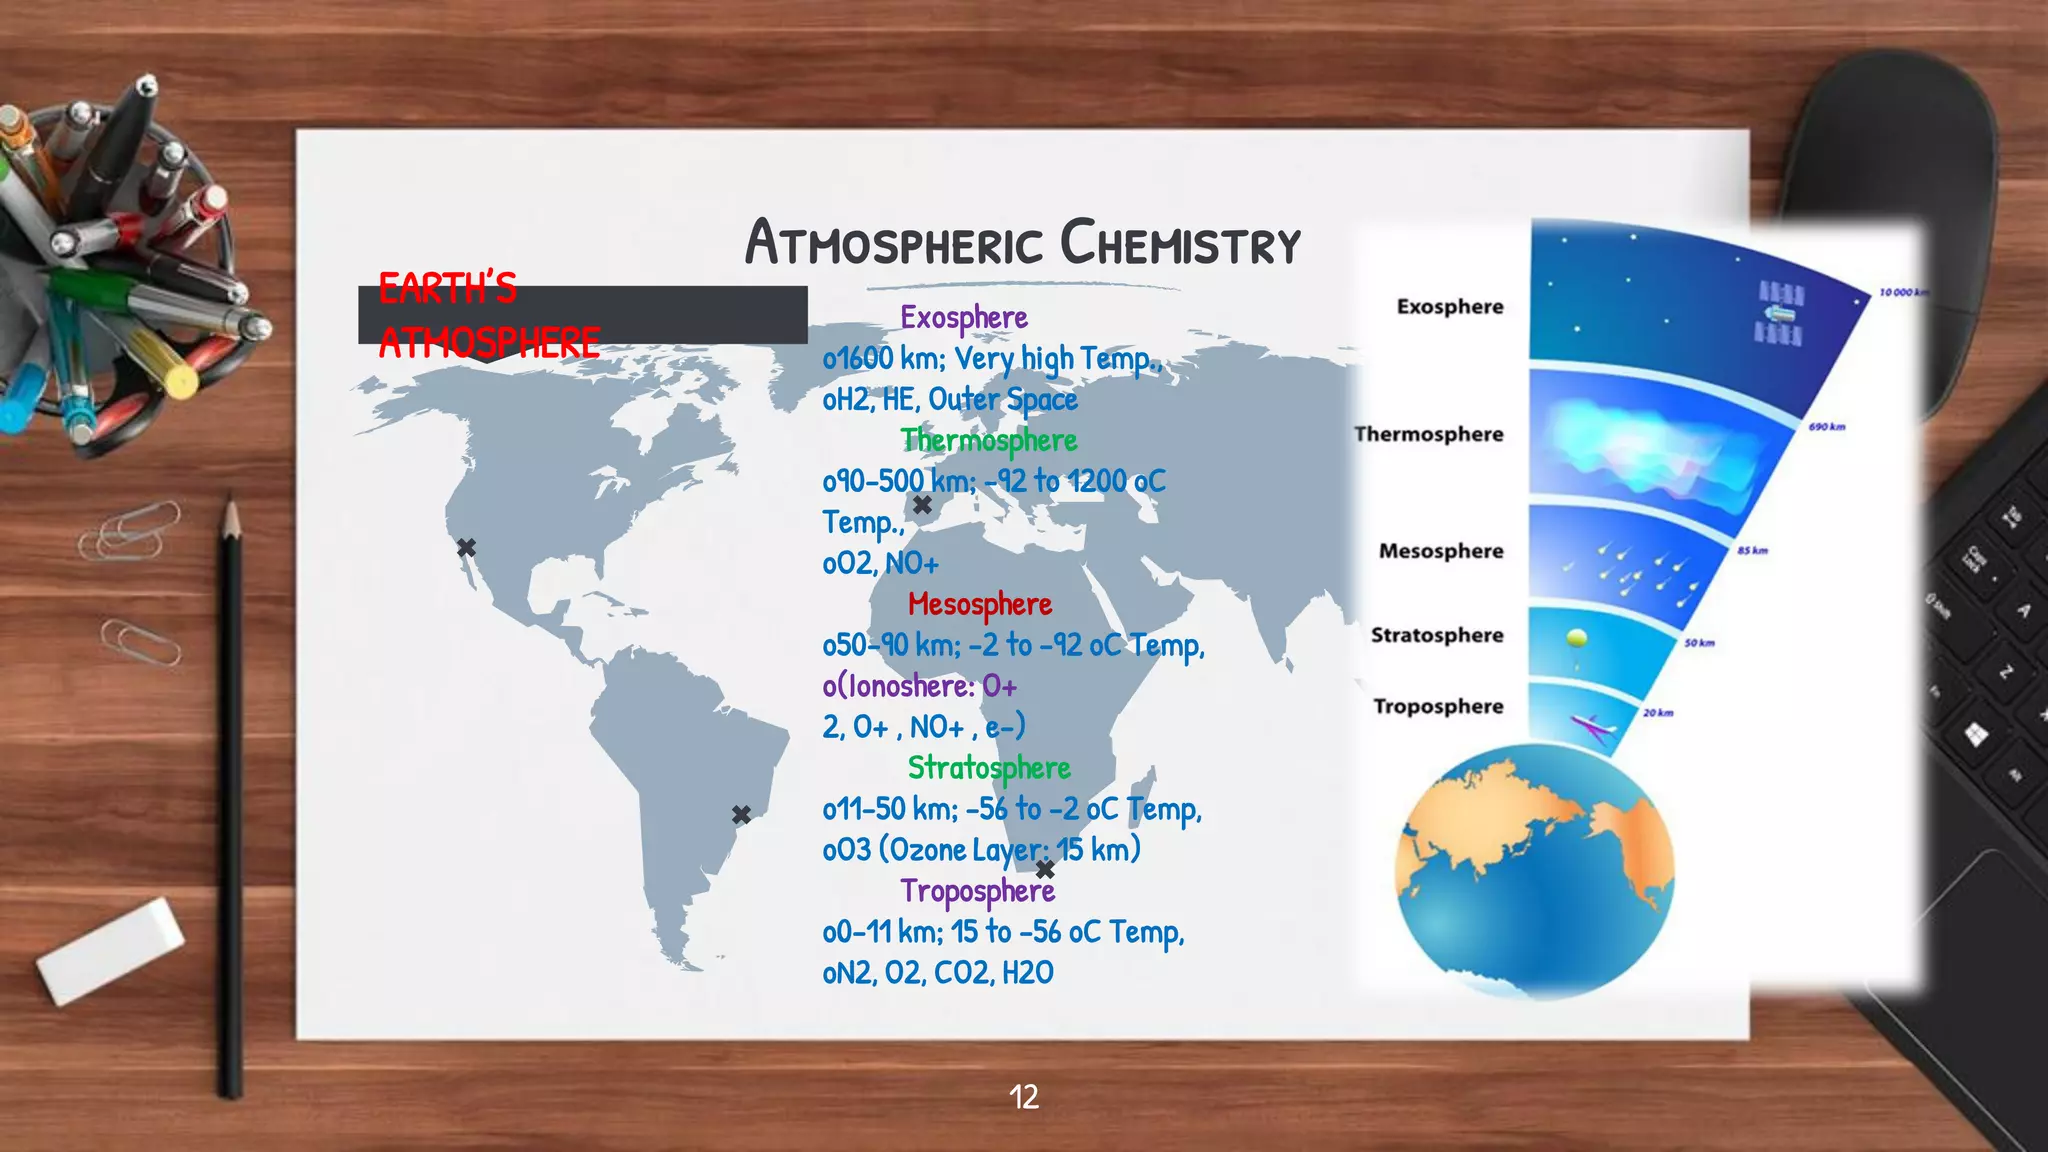 Atmospheric Chemistry
EARTH'S
ATMOSPHERE
Exosphere
o1600 km; Very high Temp.,
oH2, HE, Outer Space
Thermosphere
o90-500 km; -92 to 1200 oC
Temp.,
oO2, NO+
Mesosphere
o50-90 km; -2 to -92 oC Temp,
o(Ionoshere: O+
2, O+ , NO+ , e-)
Stratosphere
o11-50 km; -56 to -2 oC Temp,
oO3 (Ozone Layer: 15 km)
Troposphere
o0-11 km; 15 to -56 oC Temp,
oN2, O2, CO2, H2O
Exosphere
10 000 km
Thermosphere
690 km
Mesosphere
85 km
Stratosphere
50 km
Troposphere
20 km
Tab
Caps Lock
Shift
A
Z
Fn
Alt
12